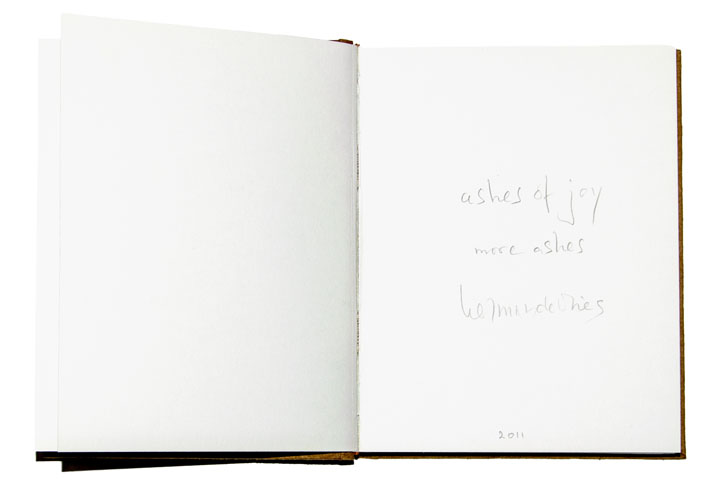 ashes of joy
more ashes
herman de vries
2011